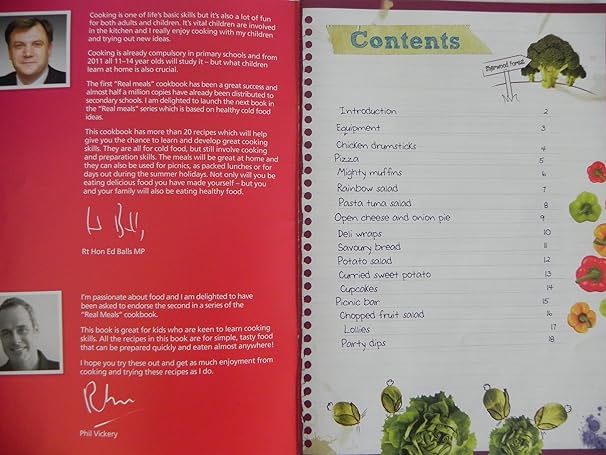 Cooking is one of life's basic skills but it's also a lot of fun
for both adults and children. It's vital children are involved
in the kitchen and I really enjoy cooking with my children
and trying out new ideas.
Cooking is already compulsory in primary schools and from
2011 all 11–14 year olds will study it – but what children
learn at home is also crucial.
The first "Real meals" cookbook has been a great success and
almost half a million copies have already been distributed to
secondary schools. I am delighted to launch the next book in
the "Real meals" series which is based on healthy cold food
ideas.
This cookbook has more than 20 recipes which will help
give you the chance to learn and develop great cooking
skills. They are all for cold food, but still involve cooking
and preparation skills. The meals will be great at home and
they can also be used for picnics, as packed lunches or for
days out during the summer holidays. Not only will you be
eating delicious food you have made yourself – but you
and your family will also be eating healthy food.
Rt Hon Ed Balls MP
I'm passionate about food and I am delighted to have
been asked to endorse the second in a series of the
"Real Meals" cookbook.
This book is great for kids who are keen to learn cooking
skills. All the recipes in this book are for simple, tasty food
that can be prepared quickly and eaten almost anywhere!
I hope you try these out and get as much enjoyment from
cooking and trying these recipes as I do.
Phil Vickery
Contents
Sherwood Forest
Introduction 2
Equipment 3
Chicken drumsticks 4
Pizza 5
Mighty muffins 6
Rainbow salad 7
Pasta tuna salad 8
Open cheese and onion pie 9
Deli wraps 10
Savoury bread 11
Potato salad 12
Curried sweet potato 13
Cupcakes 14
Picnic bar 15
Chopped fruit salad 16
Lollies 17
Party dips 18